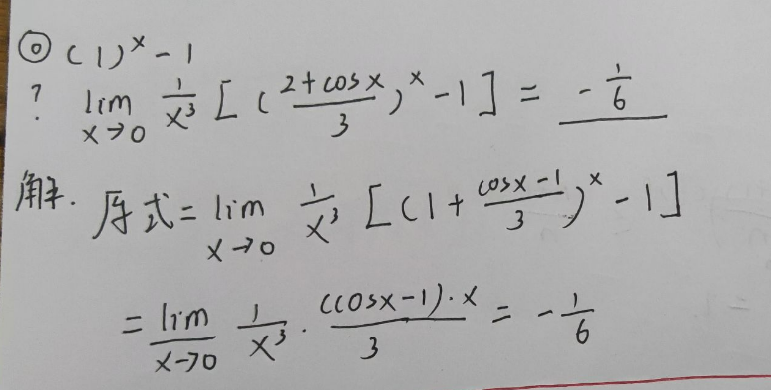 ⊙ (1)^x - 1
? lim_{x→0} 1/x³ [ ( (2+cosx)/3 )^x - 1 ] = -1/6
解. 原式 = lim_{x→0} 1/x³ [ (1 + (cosx-1)/3 )^x - 1 ]
= lim_{x→0} 1/x³ · ((cosx-1)·x)/3 = -1/6